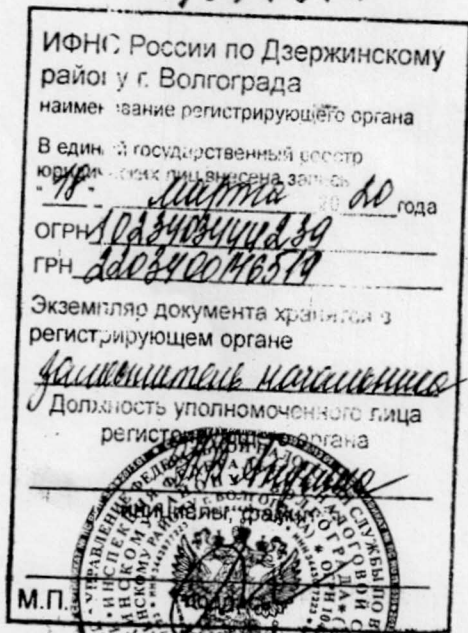 ИФНС России по Дзержинскому
району г. Волгограда
наименование регистрирующего органа
В единый государственный реестр
юридических лиц внесена запись
"18" марта 2020 года
ОГРН 1023403444239
ГРН 2203400146519
Экземпляр документа хранится в
регистрирующем органе
заместитель начальника
Должность уполномоченного лица
регистрирующего органа
инициалы, фамилия
М.П. подпись